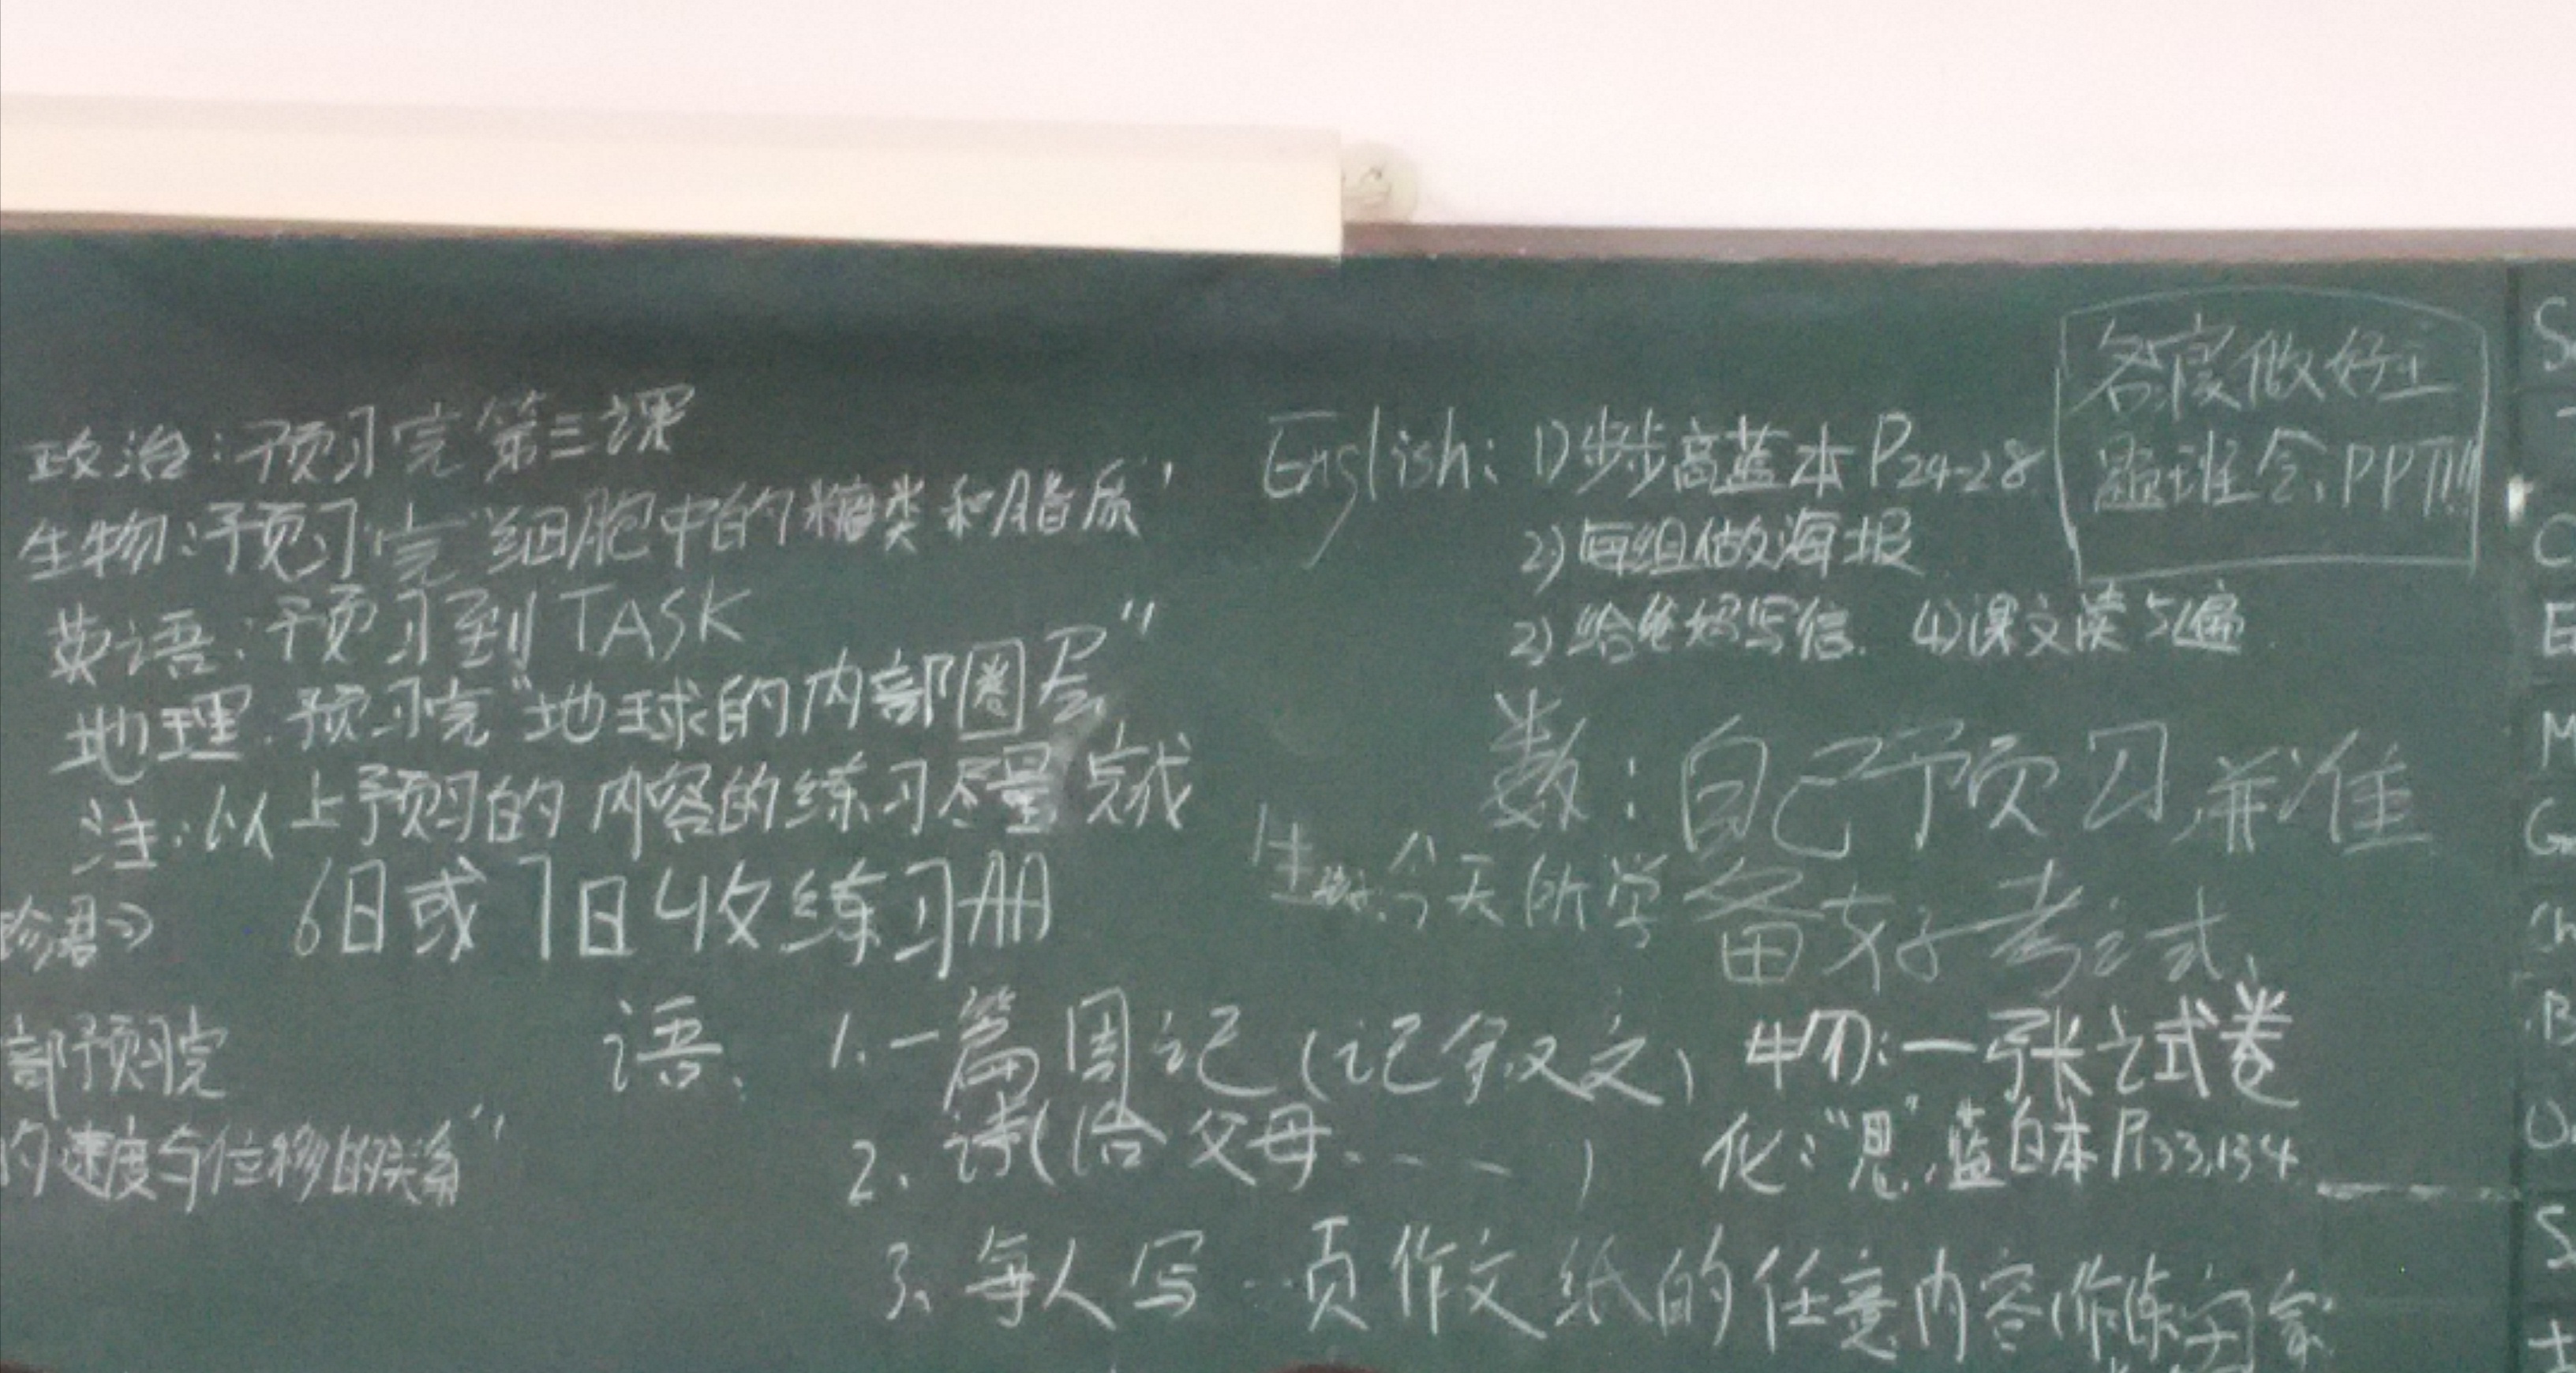 政治:预习完第三课
生物:预习完“细胞中的糖类和脂质”
英语:预习到TASK
地理:预习完“地球的内部圈层”
注:以上预习的内容的练习尽量完成
6日或7日收练习册
部预习完
的速度与位移的关系”
English: 1)步步高蓝本P24-28
2)每组做海报
2)给爸妈写信. 4)课文读5遍
各寝做好主
题班会PPT!!!
数:自己预习,并准
备好考试
生物:今天所学
语: 1.一篇周记(记叙文)
2.读(给父母----)
3.每人写一页作文纸的任意内容(作练字
物:一张试卷
化:“思”蓝白本P133,134